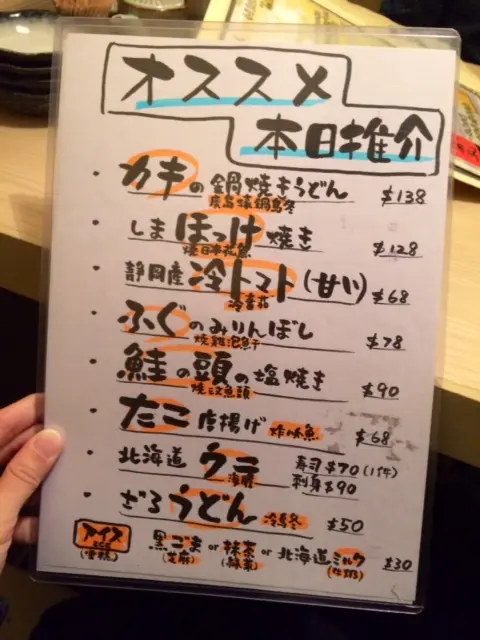 オススメ
本日推介
カキの鍋焼きうどん $138
廣島燒鍋烏冬
しまほっけ焼き $128
燒日本花魚
静岡産冷トマト(甘い) $68
冷番茄
ふぐのみりんぼし $78
燒雞泡魚干
鮭の頭の塩焼き $90
燒三文魚頭
たこ唐揚げ 炸八爪魚 $68
北海道ウニ 寿司$70(1件)
海膽 刺身$90
ざるうどん 冷烏冬 $50
アイス 黒ごま or 抹茶 or 北海道ミルク $30
ICE
(雪糕) (芝麻) (綠茶) (牛奶)